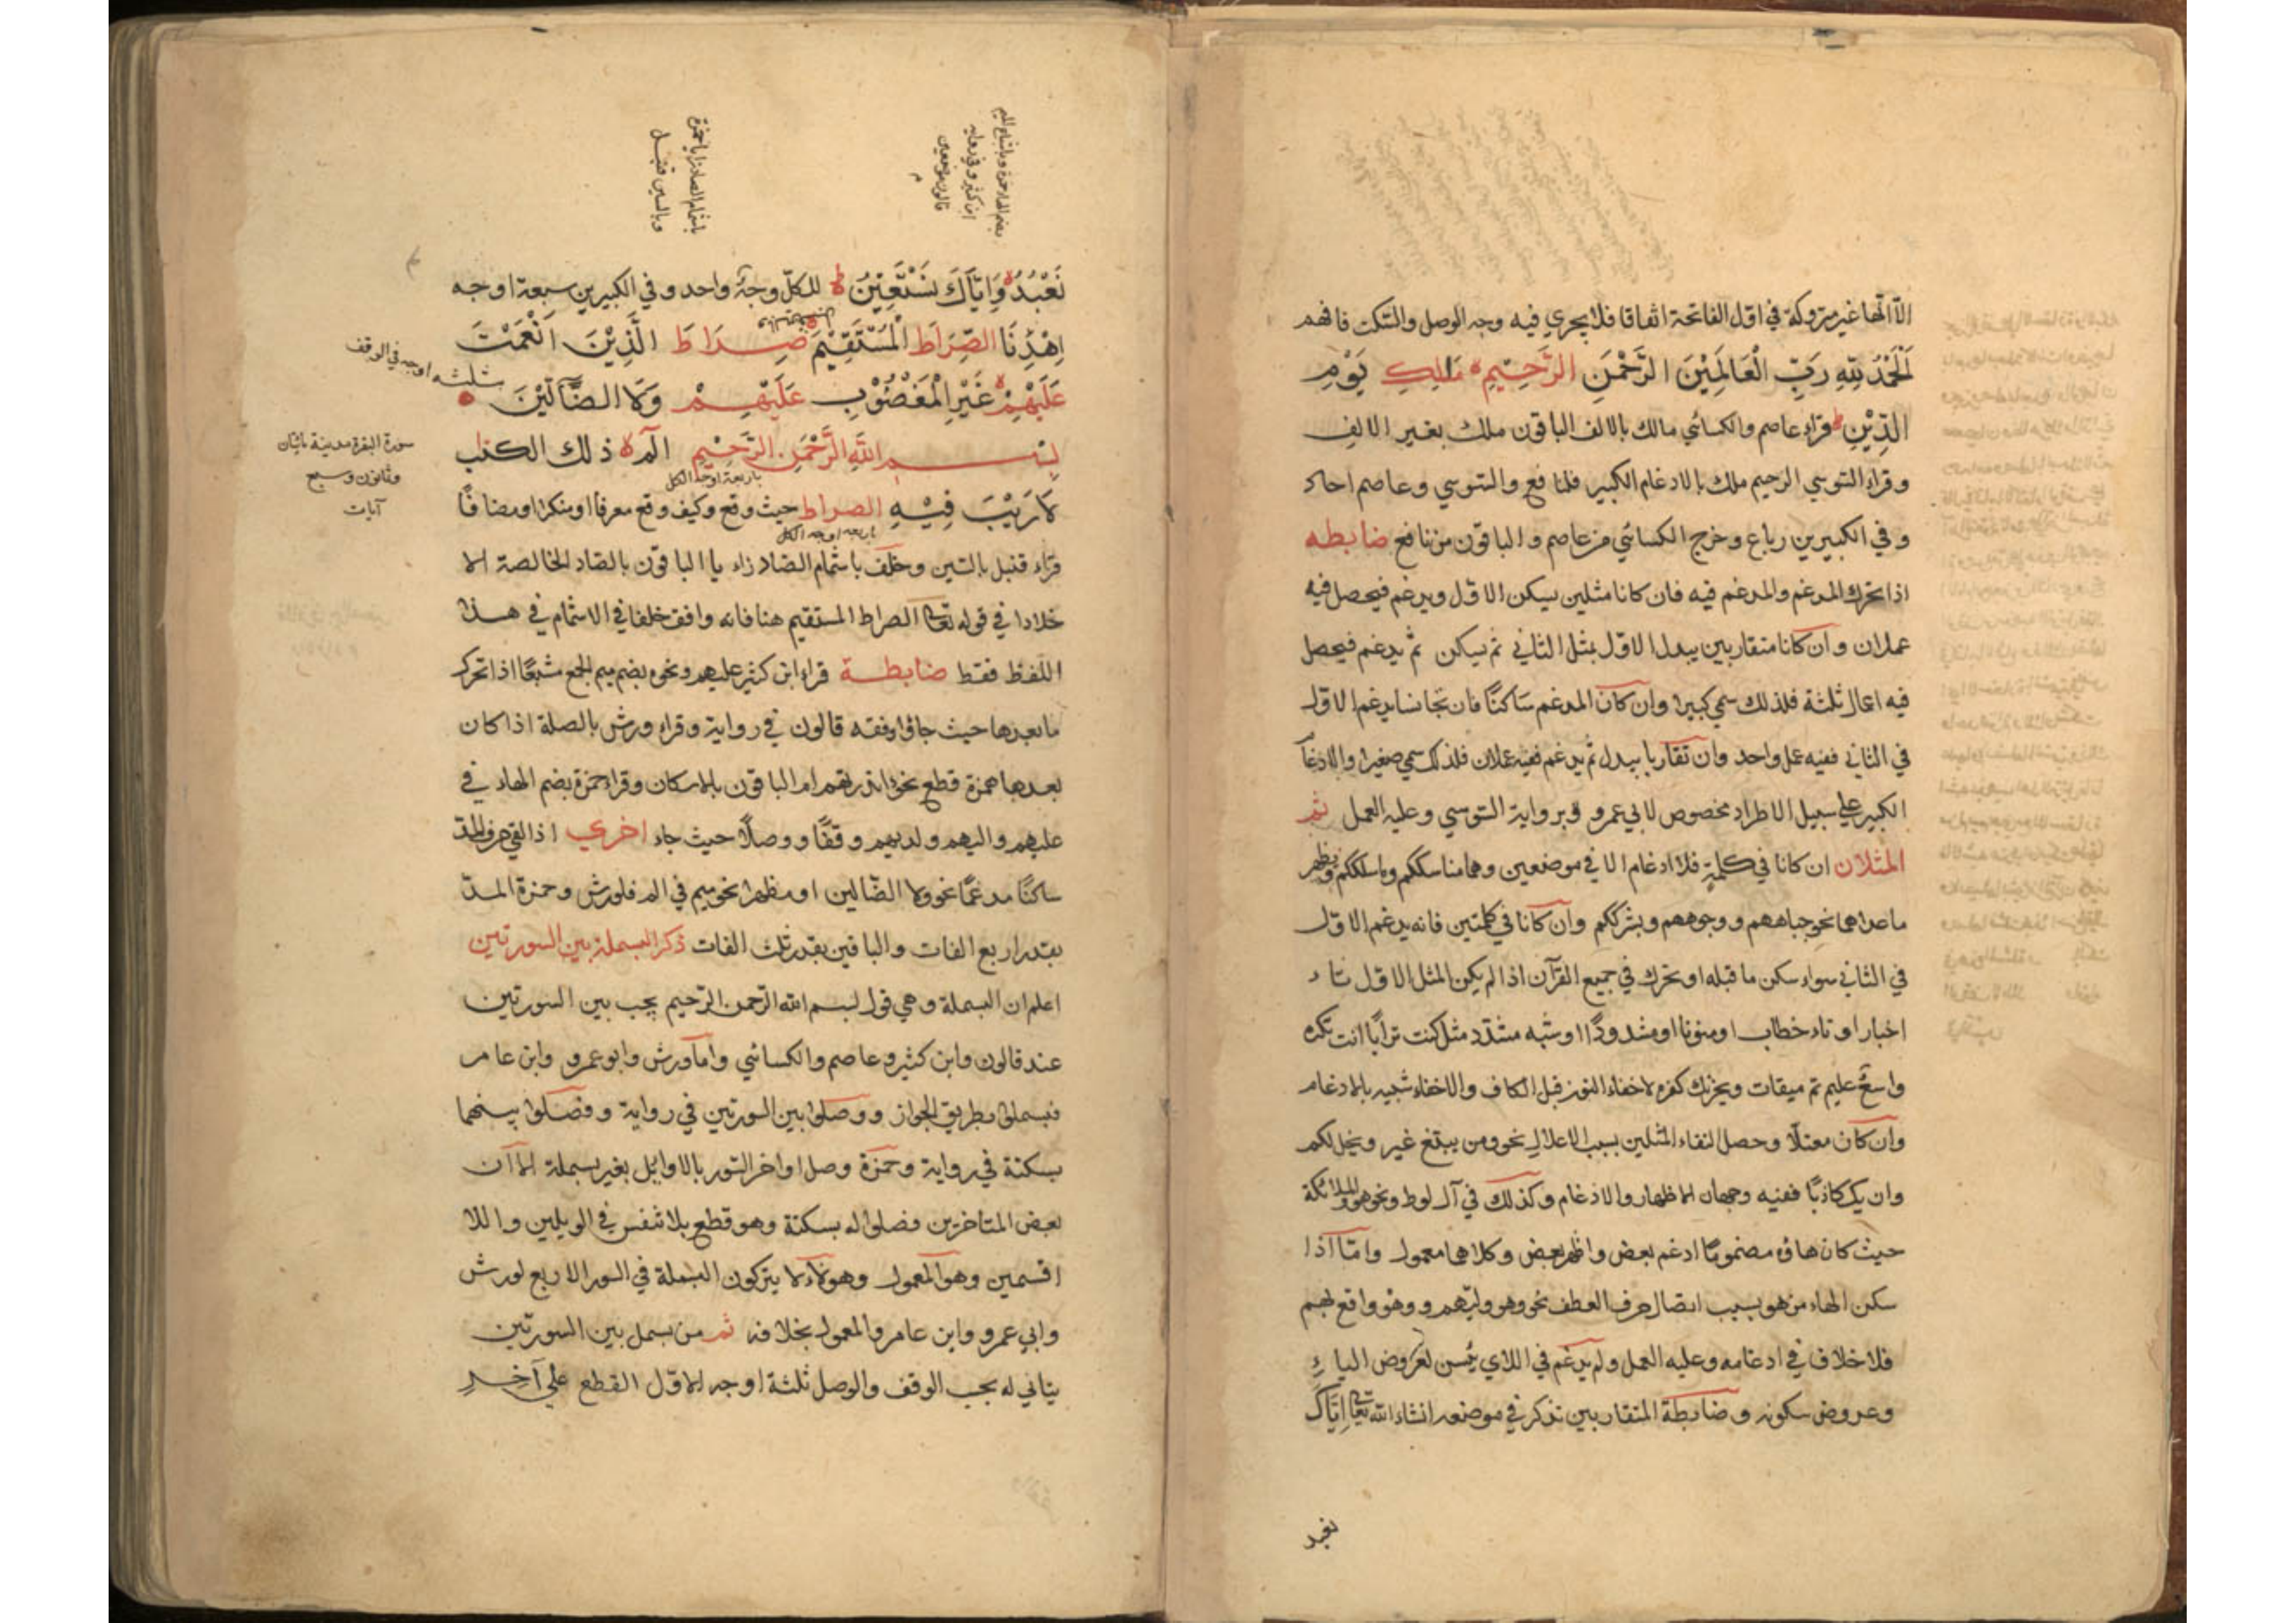 الا انها غير متروكة في اول الفاتحة اتفاقا فلا يجري فيه وجه الوصل والسكت فافهم
اَلْحَمْدُ لِلّهِ رَبِّ الْعَالَمِيْنَ الرَّحْمٰنِ الرَّحِيْمِ مَالِكِ يَوْمِ
الدِّيْنِ قراء عاصم والكسائي مالك بالالف الباقون ملك بغير الالف
وقراء السوسي الرحيم ملك بالادغام الكبير فلنافع والسوسي وعاصم احاد
وفي الكبيرين رباع وخرج الكسائي من عاصم والباقون من نافع ضابطه
اذا تحرك المدغم والمدغم فيه فان كانا مثلين يسكن الاول ويدغم فيحصل فيه
عملان وان كانا متقاربين يبدل الاول بمثل الثاني ثم يسكن ثم يدغم فيحصل
فيه اعمال ثلثة فلذلك سمي كبيرا وان كان المدغم ساكنًا فان تجانسا يدغم الاول
في الثاني ففيه عمل واحد وان تقاربا يبدل ثم يدغم ففيه عملان فلذلك سمي صغيرا والادغام
الكبير علي سبيل الاطراد مخصوص لابي عمرو وبرواية السوسي وعليه العمل ثم
المثلان ان كانا في كلمة فلا ادغام الا في موضعين وهما مناسككم وماسلككم ويظهر
ماعداهما نحو جباههم ووجوههم وبشرككم وان كانا في كلمتين فانه يدغم الاول
في الثاني سواء سكن ما قبله او تحرك في جميع القرآن اذا لم يكن المثل الاول تاء
اخبار او تاء خطاب او منونا او مشدودًا او شبه مشدد مثل كنت ترابًا انت تكره
واسعٌ عليم تم ميقات ويحزنك كفره لاخفاء النون قبل الكاف والاخفاء شبيه بالادغام
وان كان معتلًا وحصل التقاء المثلين بسبب الاعلال نحو ومن يبتغ غير ويخل لكم
وان يك كاذبًا ففيه وجهان الاظهار والادغام وكذلك في آل لوط ونحو هو والملائكة
حيث كان هاؤه مضمومًا ادغم بعض واظهر بعض وكلاهما معمول وامّا اذا
سكن الهاء من هو بسبب اتصال حرف العطف نحو وهو وليّهم ووهو واقع بهم
فلا خلاف في ادغامه وعليه العمل ولم يدغم في اللاي يئسن لعروض الياء
وعروض سكونه وضابطة المتقاربين تذكر في موضعه انشاء الله تعالي اِيَّاكَ
نعبد
بضم الهاء حمزة وباشباع الميم
ابن كثير وفي رواية
قالون موضعين
باشمام الصاد زايا حمزة
وبالسين قنبل
نَعْبُدُ وَاِيَّاكَ نَسْتَعِيْنُ للكلّ وجهٌ واحد وفي الكبيرين سبعة اوجه
اِهْدِنَا الصِّرَاطَ الْمُسْتَقِيْمَ صِرَاطَ الَّذِيْنَ اَنْعَمْتَ
ثلثه اوجه في الوقف
عَلَيْهِمْ غَيْرِ الْمَغْضُوْبِ عَلَيْهِمْ وَلَا الضَّآلِّيْنَ
بِسْمِ اللّهِ الرَّحْمٰنِ الرَّحِيْمِ الٓمٓ ذلك الكتب
باربعة اوجه الكل
سورة البقرة مدينة مائتان
وثمانون وسبع
آيات
لَا رَيْبَ فِيْهِ الصراط حيث وقع وكيف وقع معرفا او منكرا او مضافًا
باربعه اوجه الكل
قراء قنبل بالسين وخلف باشمام الصاد زاء يا الباقون بالصاد الخالصة الا
خلادا في قوله تعالي الصراط المستقيم هنا فانه وافق خلفا في الاشمام في هذا
اللفظ فقط ضابطة قراء ابن كثير عليهم ونحوه بضم ميم الجمع مشبعًا اذا تحرك
ما بعدها حيث جاؤا وفقه قالون في رواية وقراء ورش بالصلة اذا كان
بعدها همزة قطع نحو انذرتهم ام الباقون بالاسكان وقراء حمزة بضم الهاء في
عليهم واليهم ولديهم وقفًا ووصلًا حيث جاء اخري اذا لقي حرف المدّ
ساكنًا مدغمًا نحو ولا الضّالين او مظهرا نحو ميم في الم فلورش وحمزة المدّ
بقدر اربع الفات والباقين بقدر ثلث الفات ذكر البسملة بين السورتين
اعلم ان البسملة وهي قول بسم الله الرحمن الرّحيم يجب بين السورتين
عند قالون وابن كثير وعاصم والكسائي وامّا ورش وابو عمرو وابن عامر
فبسملوا بطريق الجواز ووصلوا بين السورتين في رواية وفصلوا بينهما
بسكتة في رواية وحمزة وصل اواخر السّور بالاوائل بغير بسملة الا ان
بعض المتاخرين فصلوا له بسكتة وهو قطع بلا تنفس في الويلين واللا
اقسمين وهو المعمول وهولاء لا يتركون البسملة في السور الاربع لورش
وابي عمرو وابن عامر والمعمول بخلافه ثم من بسمل بين السورتين
يتاتي له بحسب الوقف والوصل ثلثة اوجه الاوّل القطع علي آخِرِ